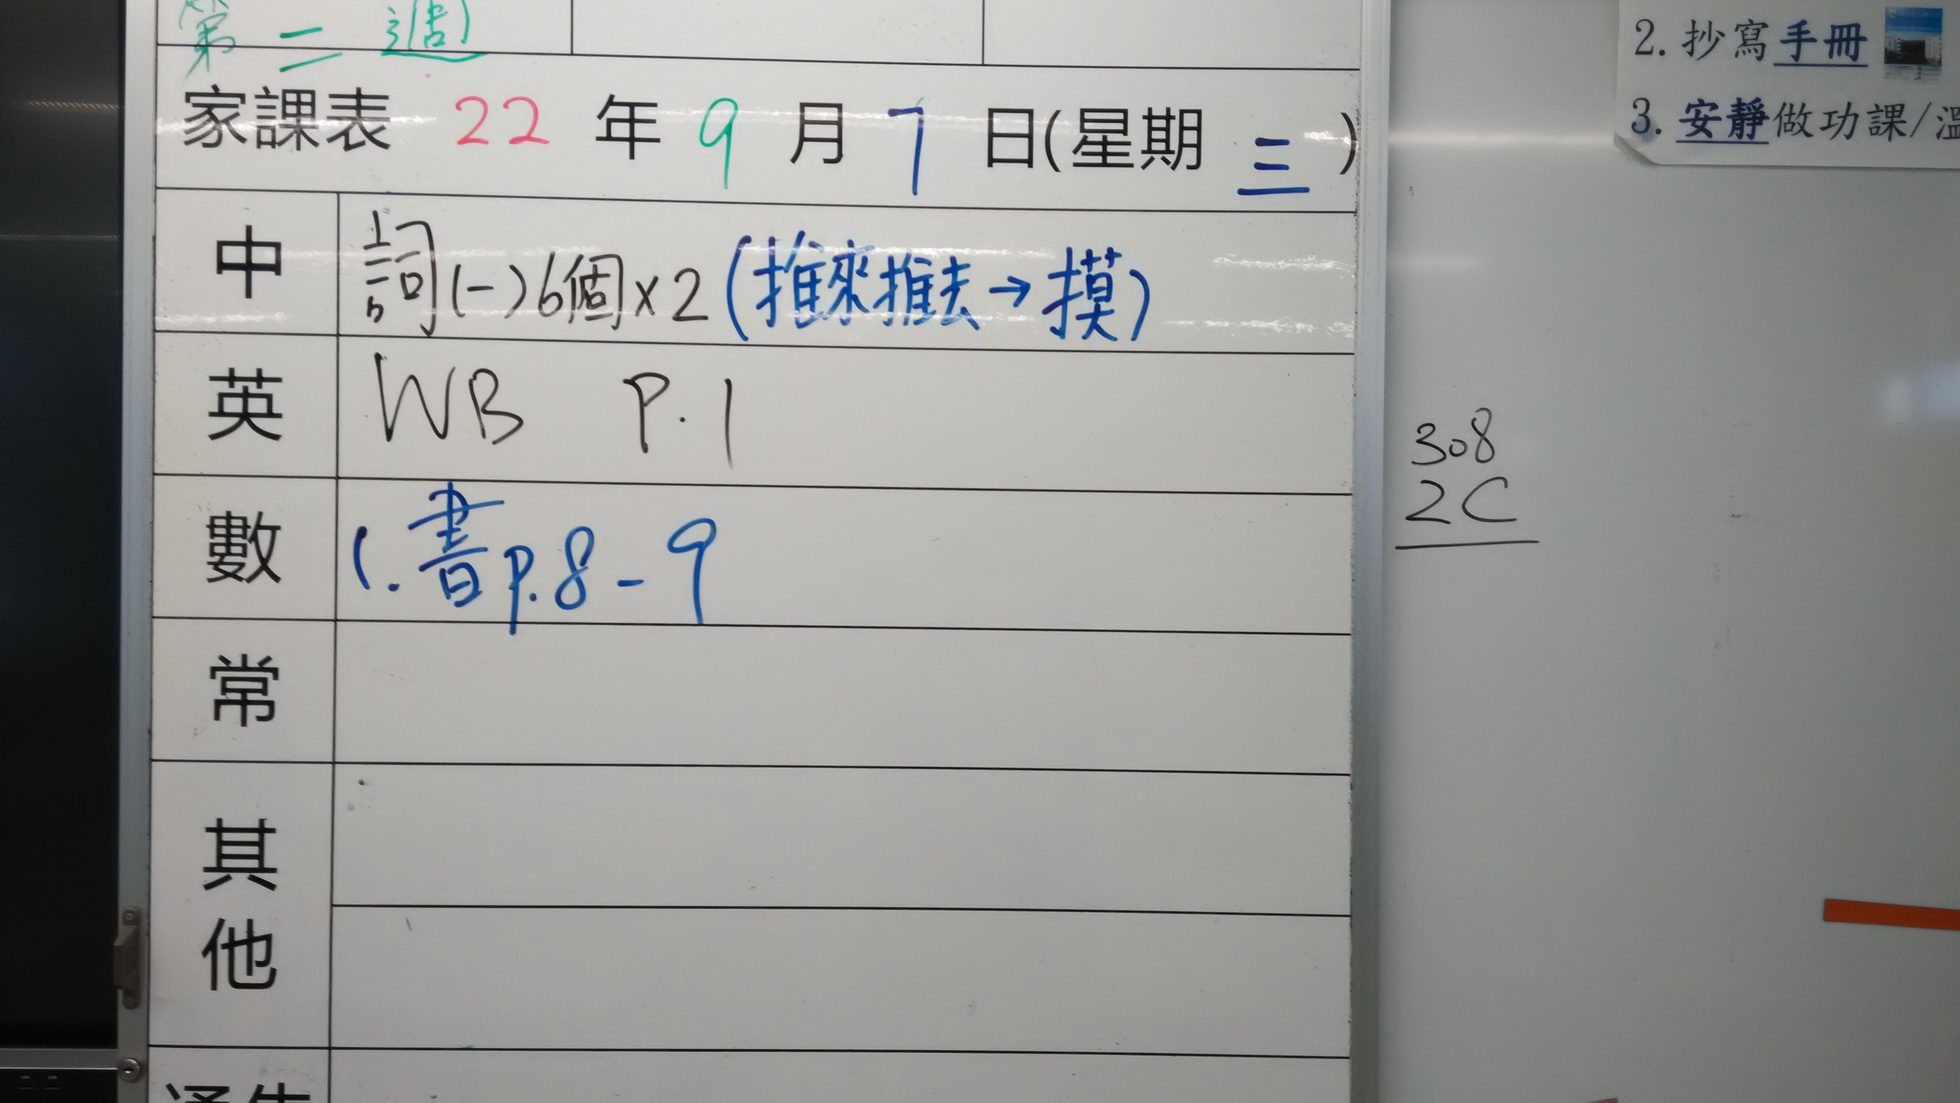 第二週
家課表 22 年 9 月 7 日(星期 三 )
中 詞(一)6個x2(推來推去→摸)
英 WB P.1
數 1.書p.8-9
常
其他
通告
308
2C
2.抄寫手冊
3.安靜做功課/溫